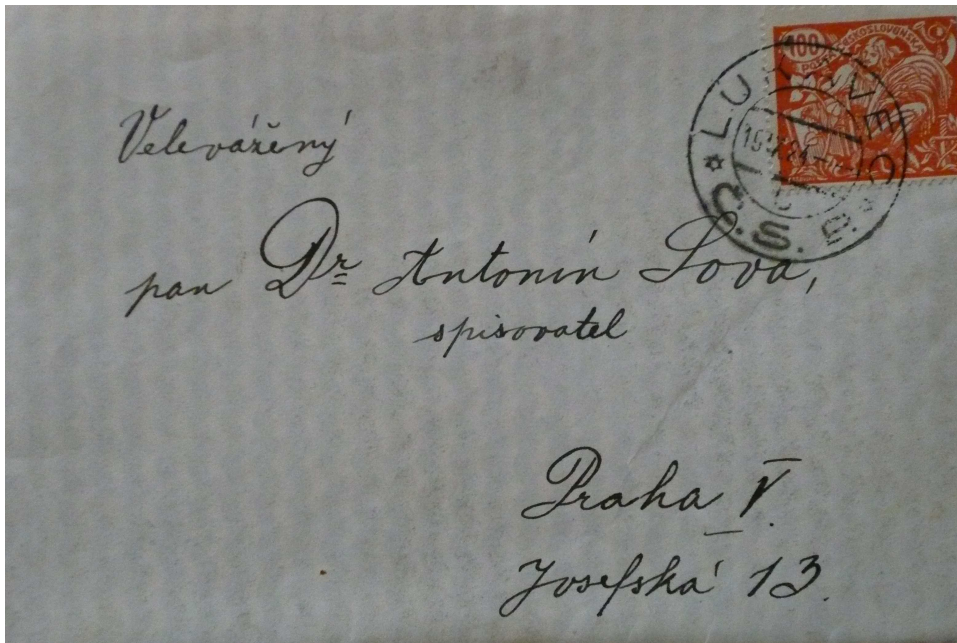 100
POŠTA ČESKOSLOVENSKÁ
LUKAVEC
Č.S.R.
Velevážený
pan Dr Antonín Sova,
spisovatel
Praha V.
Josefská 13.